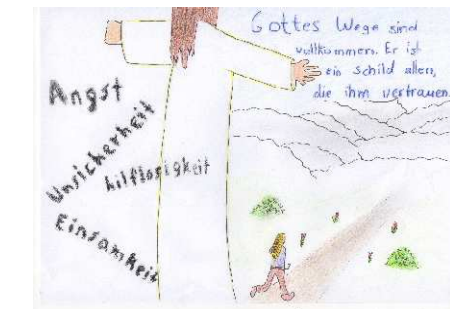 Gottes Wege sind
vollkommen. Er ist
ein Schild allen,
die ihm vertrauen.
Angst
Unsicherheit
hilflosigkeit
Einsamkeit